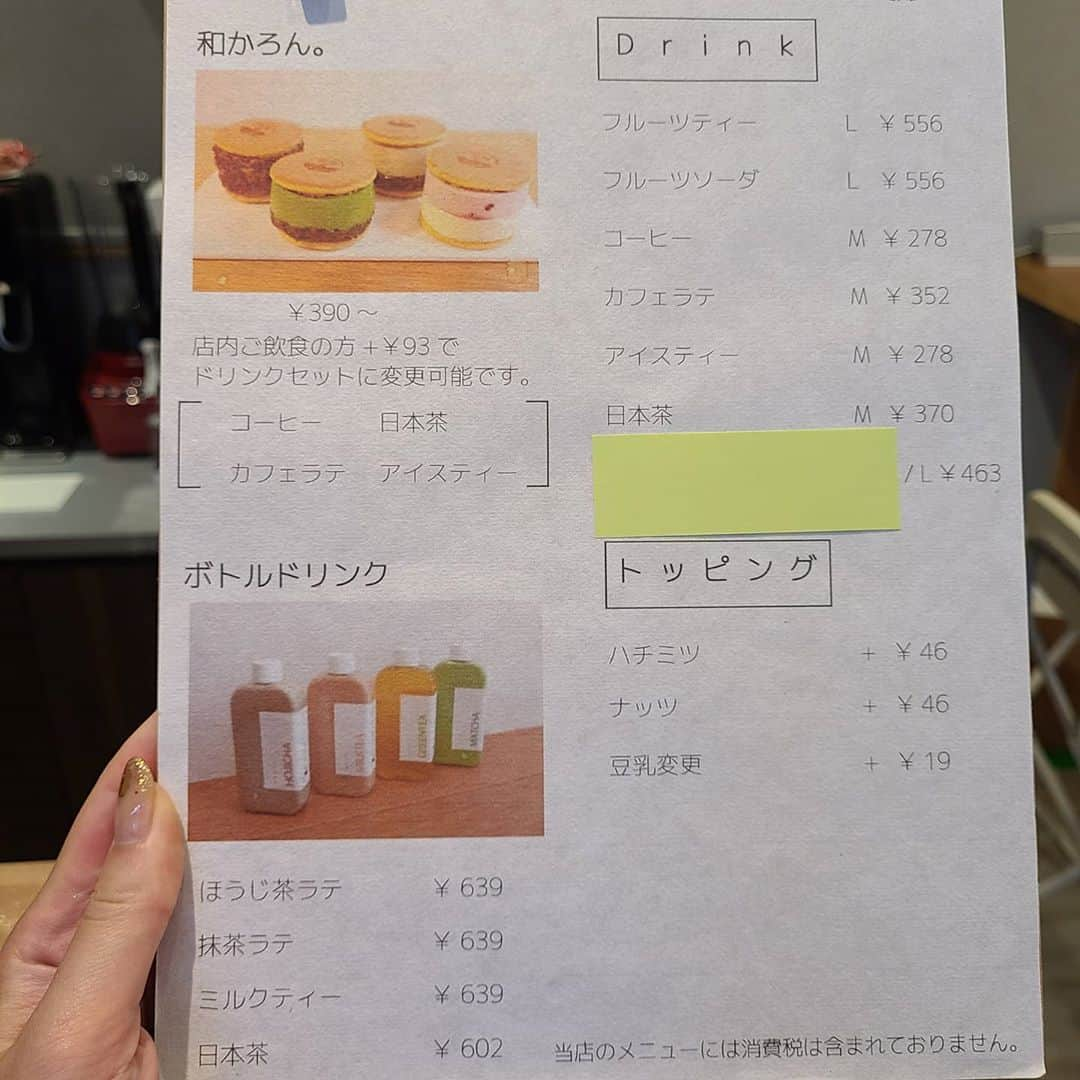 和かろん。
￥390～
店内ご飲食の方＋￥93で
ドリンクセットに変更可能です。
コーヒー 日本茶
カフェラテ アイスティー
ボトルドリンク
HOJICHA
MILKTEA
GREENTEA
MATCHA
ほうじ茶ラテ ￥639
抹茶ラテ ￥639
ミルクティー ￥639
日本茶 ￥602
Drink
フルーツティー L ￥556
フルーツソーダ L ￥556
コーヒー M ￥278
カフェラテ M ￥352
アイスティー M ￥278
日本茶 M ￥370
/L￥463
トッピング
ハチミツ ＋ ￥46
ナッツ ＋ ￥46
豆乳変更 ＋ ￥19
当店のメニューには消費税は含まれておりません。